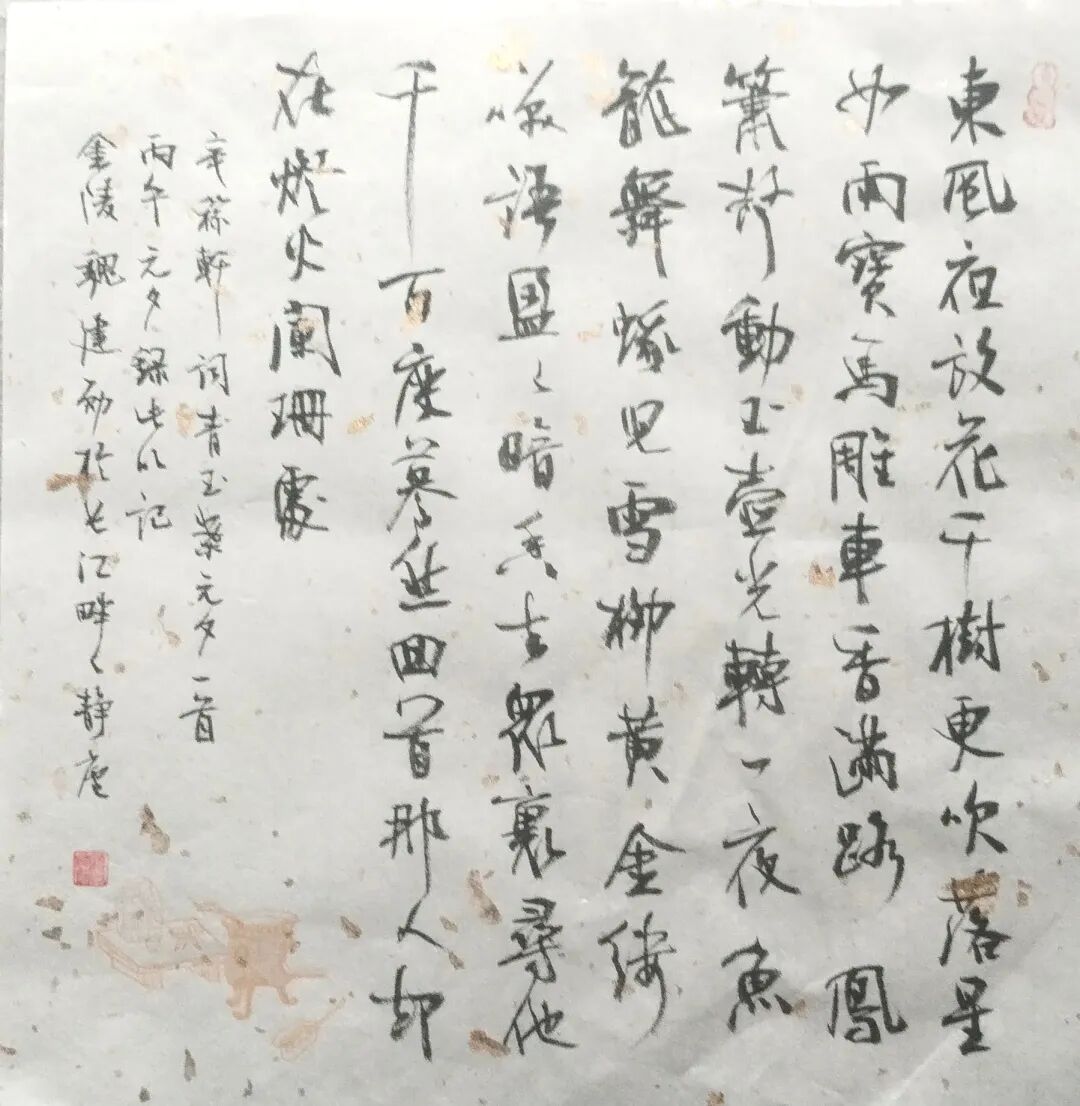 東風夜放花千樹更吹落星
如雨寶馬雕車香滿路鳳
簫聲動玉壺光轉一夜魚
龍舞蛾兒雪柳黃金縷
笑語盈〻暗香去眾裏尋他
千百度驀然回首那人却
在燈火闌珊處
辛稼軒詞青玉案元夕一首
丙午元夕録此以記
金陵魏建於長江畔之静